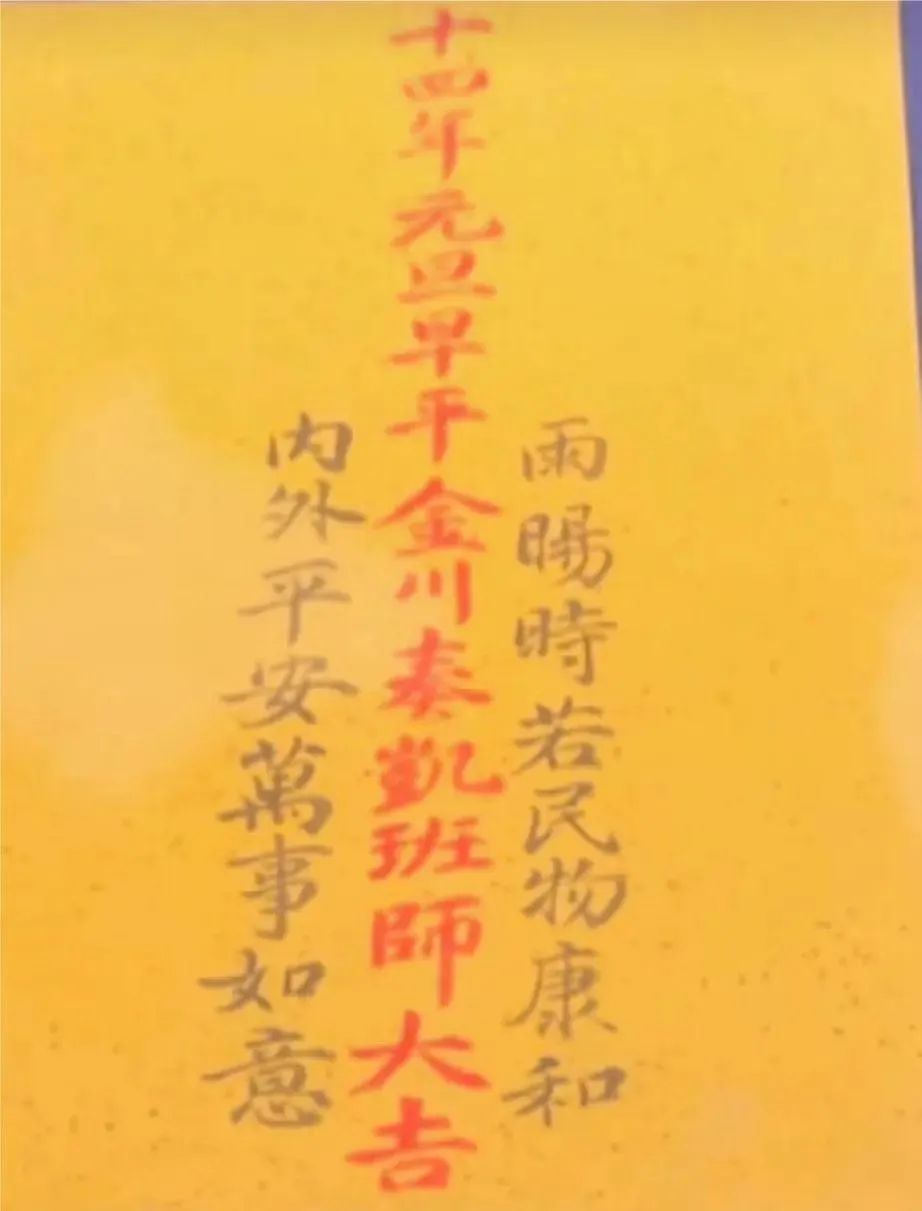 雨暘時若民物康和
十四年元旦早平金川奏凱班師大吉
內外平安萬事如意